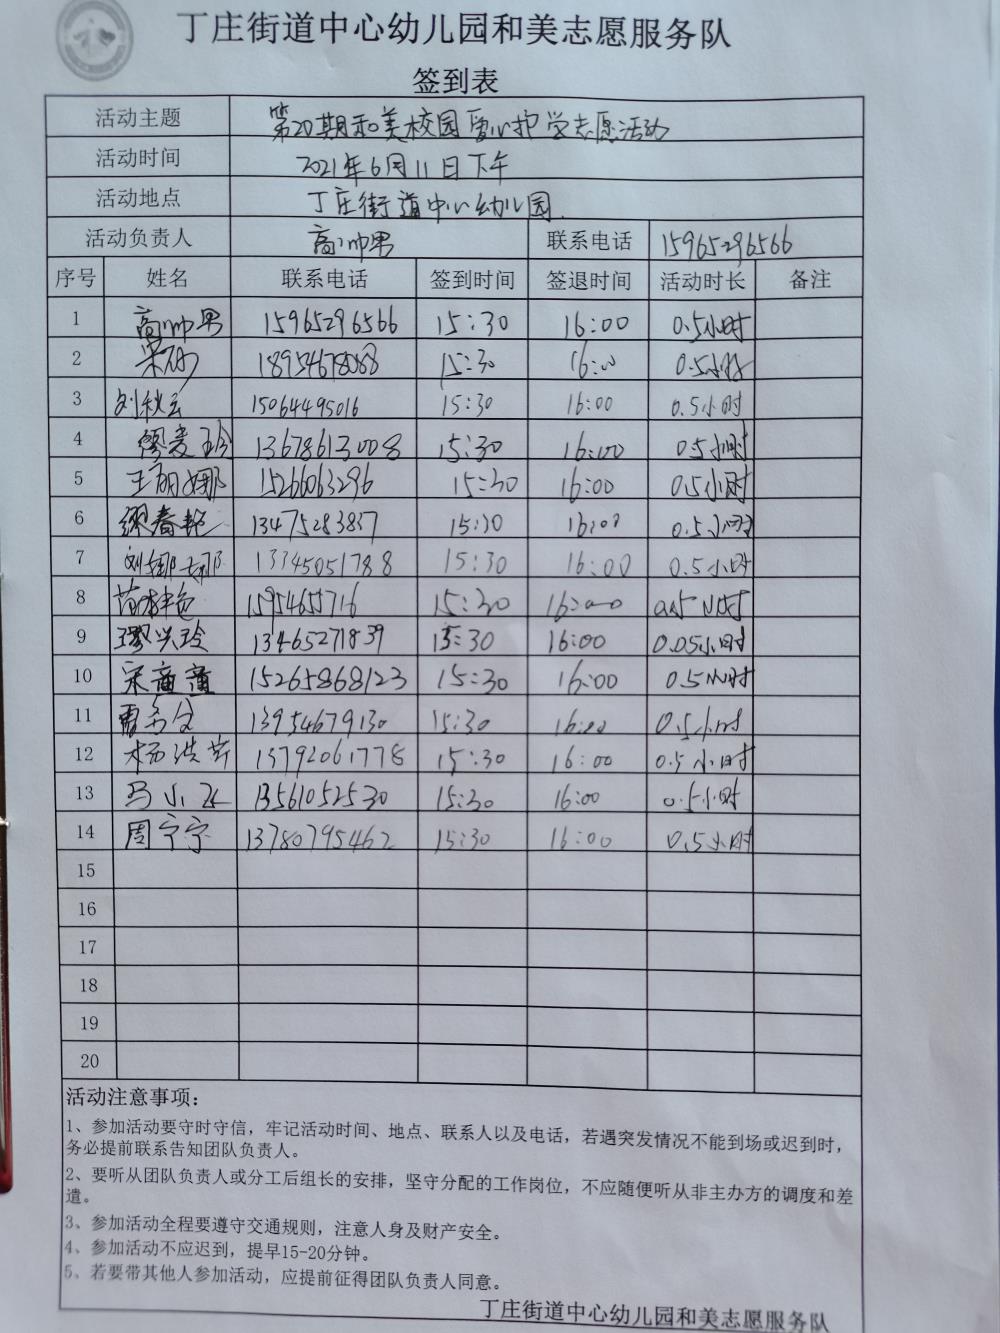 丁庄街道中心幼儿园和美志愿服务队
签到表
活动主题 第20期和美校园爱心护学志愿活动
活动时间 2021年6月11日下午
活动地点 丁庄街道中心幼儿园.
活动负责人 高帅男 联系电话 15965296566
序号 姓名 联系电话 签到时间 签退时间 活动时长 备注
1 高帅男 15965296566 15:30 16:00 0.5小时
2 18954678088 15:30 16:00 0.5小时
3 刘秋云 15064495016 15:30 16:00 0.5小时
4 13678613008 15:30 16:00 0.5小时
5 王丽娜 15266063296 15:30 16:00 0.5小时
6 缪春艳 13475283837 15:30 16:00 0.5小时
7 刘娜娜 13345051788 15:30 16:00 0.5小时
8 15954655716 15:30 16:00 0.5小时
9 缪兴玲 13465271839 15:30 16:00 0.05小时
10 宋童童 15265868123 15:30 16:00 0.5小时
11 13954679130 15:30 16:00 0.5小时
12 13792061778 15:30 16:00 0.5小时
13 马小 13561052530 15:30 16:00 0.5小时
14 周宁宁 13780795462 15:30 16:00 0.5小时
15
16
17
18
19
20
活动注意事项：
1、参加活动要守时守信，牢记活动时间、地点、联系人以及电话，若遇突发情况不能到场或迟到时，
务必提前联系告知团队负责人。
2、要听从团队负责人或分工后组长的安排，坚守分配的工作岗位，不应随便听从非主办方的调度和差
遣。
3、参加活动全程要遵守交通规则，注意人身及财产安全。
4、参加活动不应迟到，提早15-20分钟。
5、若要带其他人参加活动，应提前征得团队负责人同意。
丁庄街道中心幼儿园和美志愿服务队